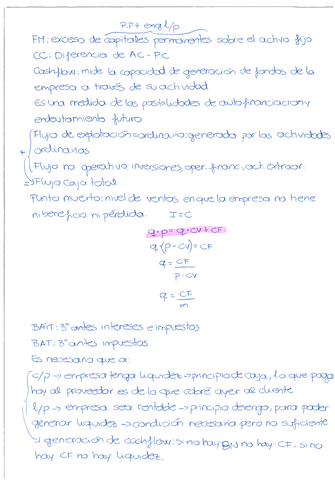 P.P + exig l/p
FM: exceso de capitales permanentes sobre el activo fijo
CC: Diferencia de AC - PC
Cashflow: mide la capacidad de generación de fondos de la
empresa a través de su actividad
Es una medida de las posibilidades de autofinanciación y
endeutamiento futuro
Flujo de explotación = ordinario: generado por las actividades
+ ordinarias
Flujo no operativo: inversiones, oper. financ, act. extraor.
=> Flujo caja total
Punto muerto: nivel de ventas en que la empresa no tiene
ni beneficio ni pérdida. I = C
q·p = q·cv + CF
q·(p - cv) = CF
q = CF / p - cv
q = CF / m
BAIT: Bº antes intereses e impuestos
BAT: Bº antes impuestos
Es necesario que a:
c/p → empresa tenga liquidez → principio de caja, lo que paga
hoy al proveedor es de lo que cobré ayer al cliente
l/p → empresa sea rentable → principio devengo, para poder
generar liquidez → condición necesaria pero no suficiente
→ generación de cashflow: si no hay BN no hay CF, si no
hay CF no hay liquidez.